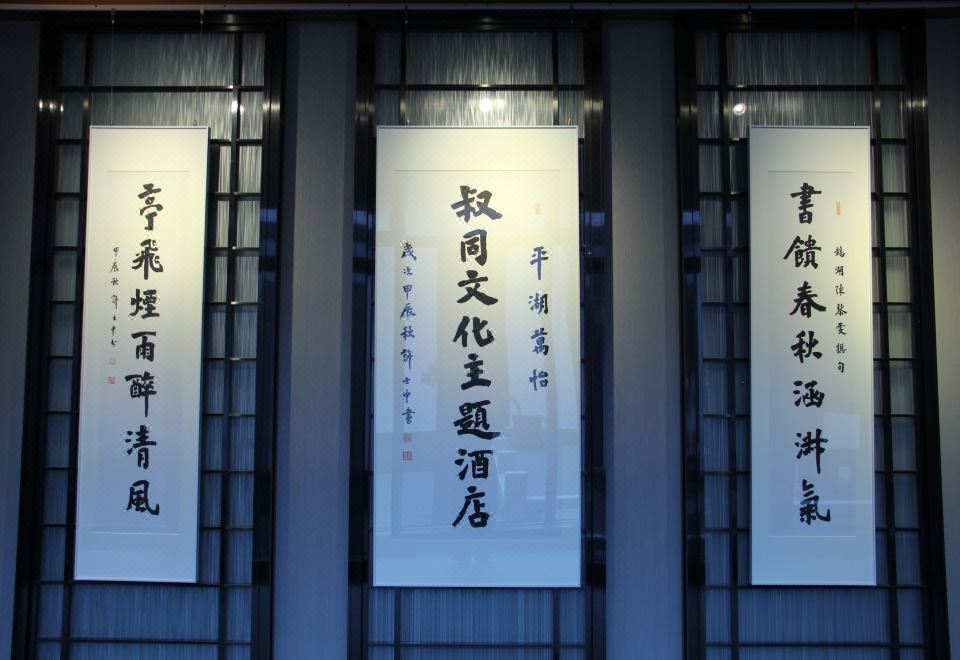 書饋春秋涵淑氣
湖陳黎雯撰句
平湖萬怡
叔同文化主題酒店
歲次甲辰秋許士中書
亭飛煙雨醉清風
甲辰秋許士中書